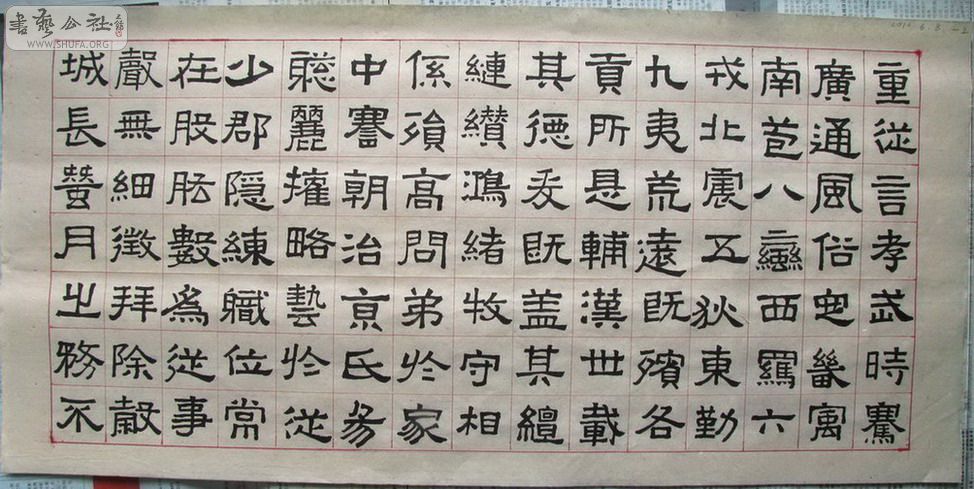 重從言孝武時騫
廣通風俗定畿寓
南苞八蠻西羈六
戎北震五狄東勤
九夷荒遠既殯各
貢所是輔漢世載
其德爰既盖其繵
縺纘鴻緒牧守相
係殞高問弟於家
中謇朝治京氏易
聰麗權略藝於從
少郡隱練職位常
在股肱數為從事
聲無細徵拜除穀
城長蠶月之務不
書藝公社
WWW.SHUFA.ORG